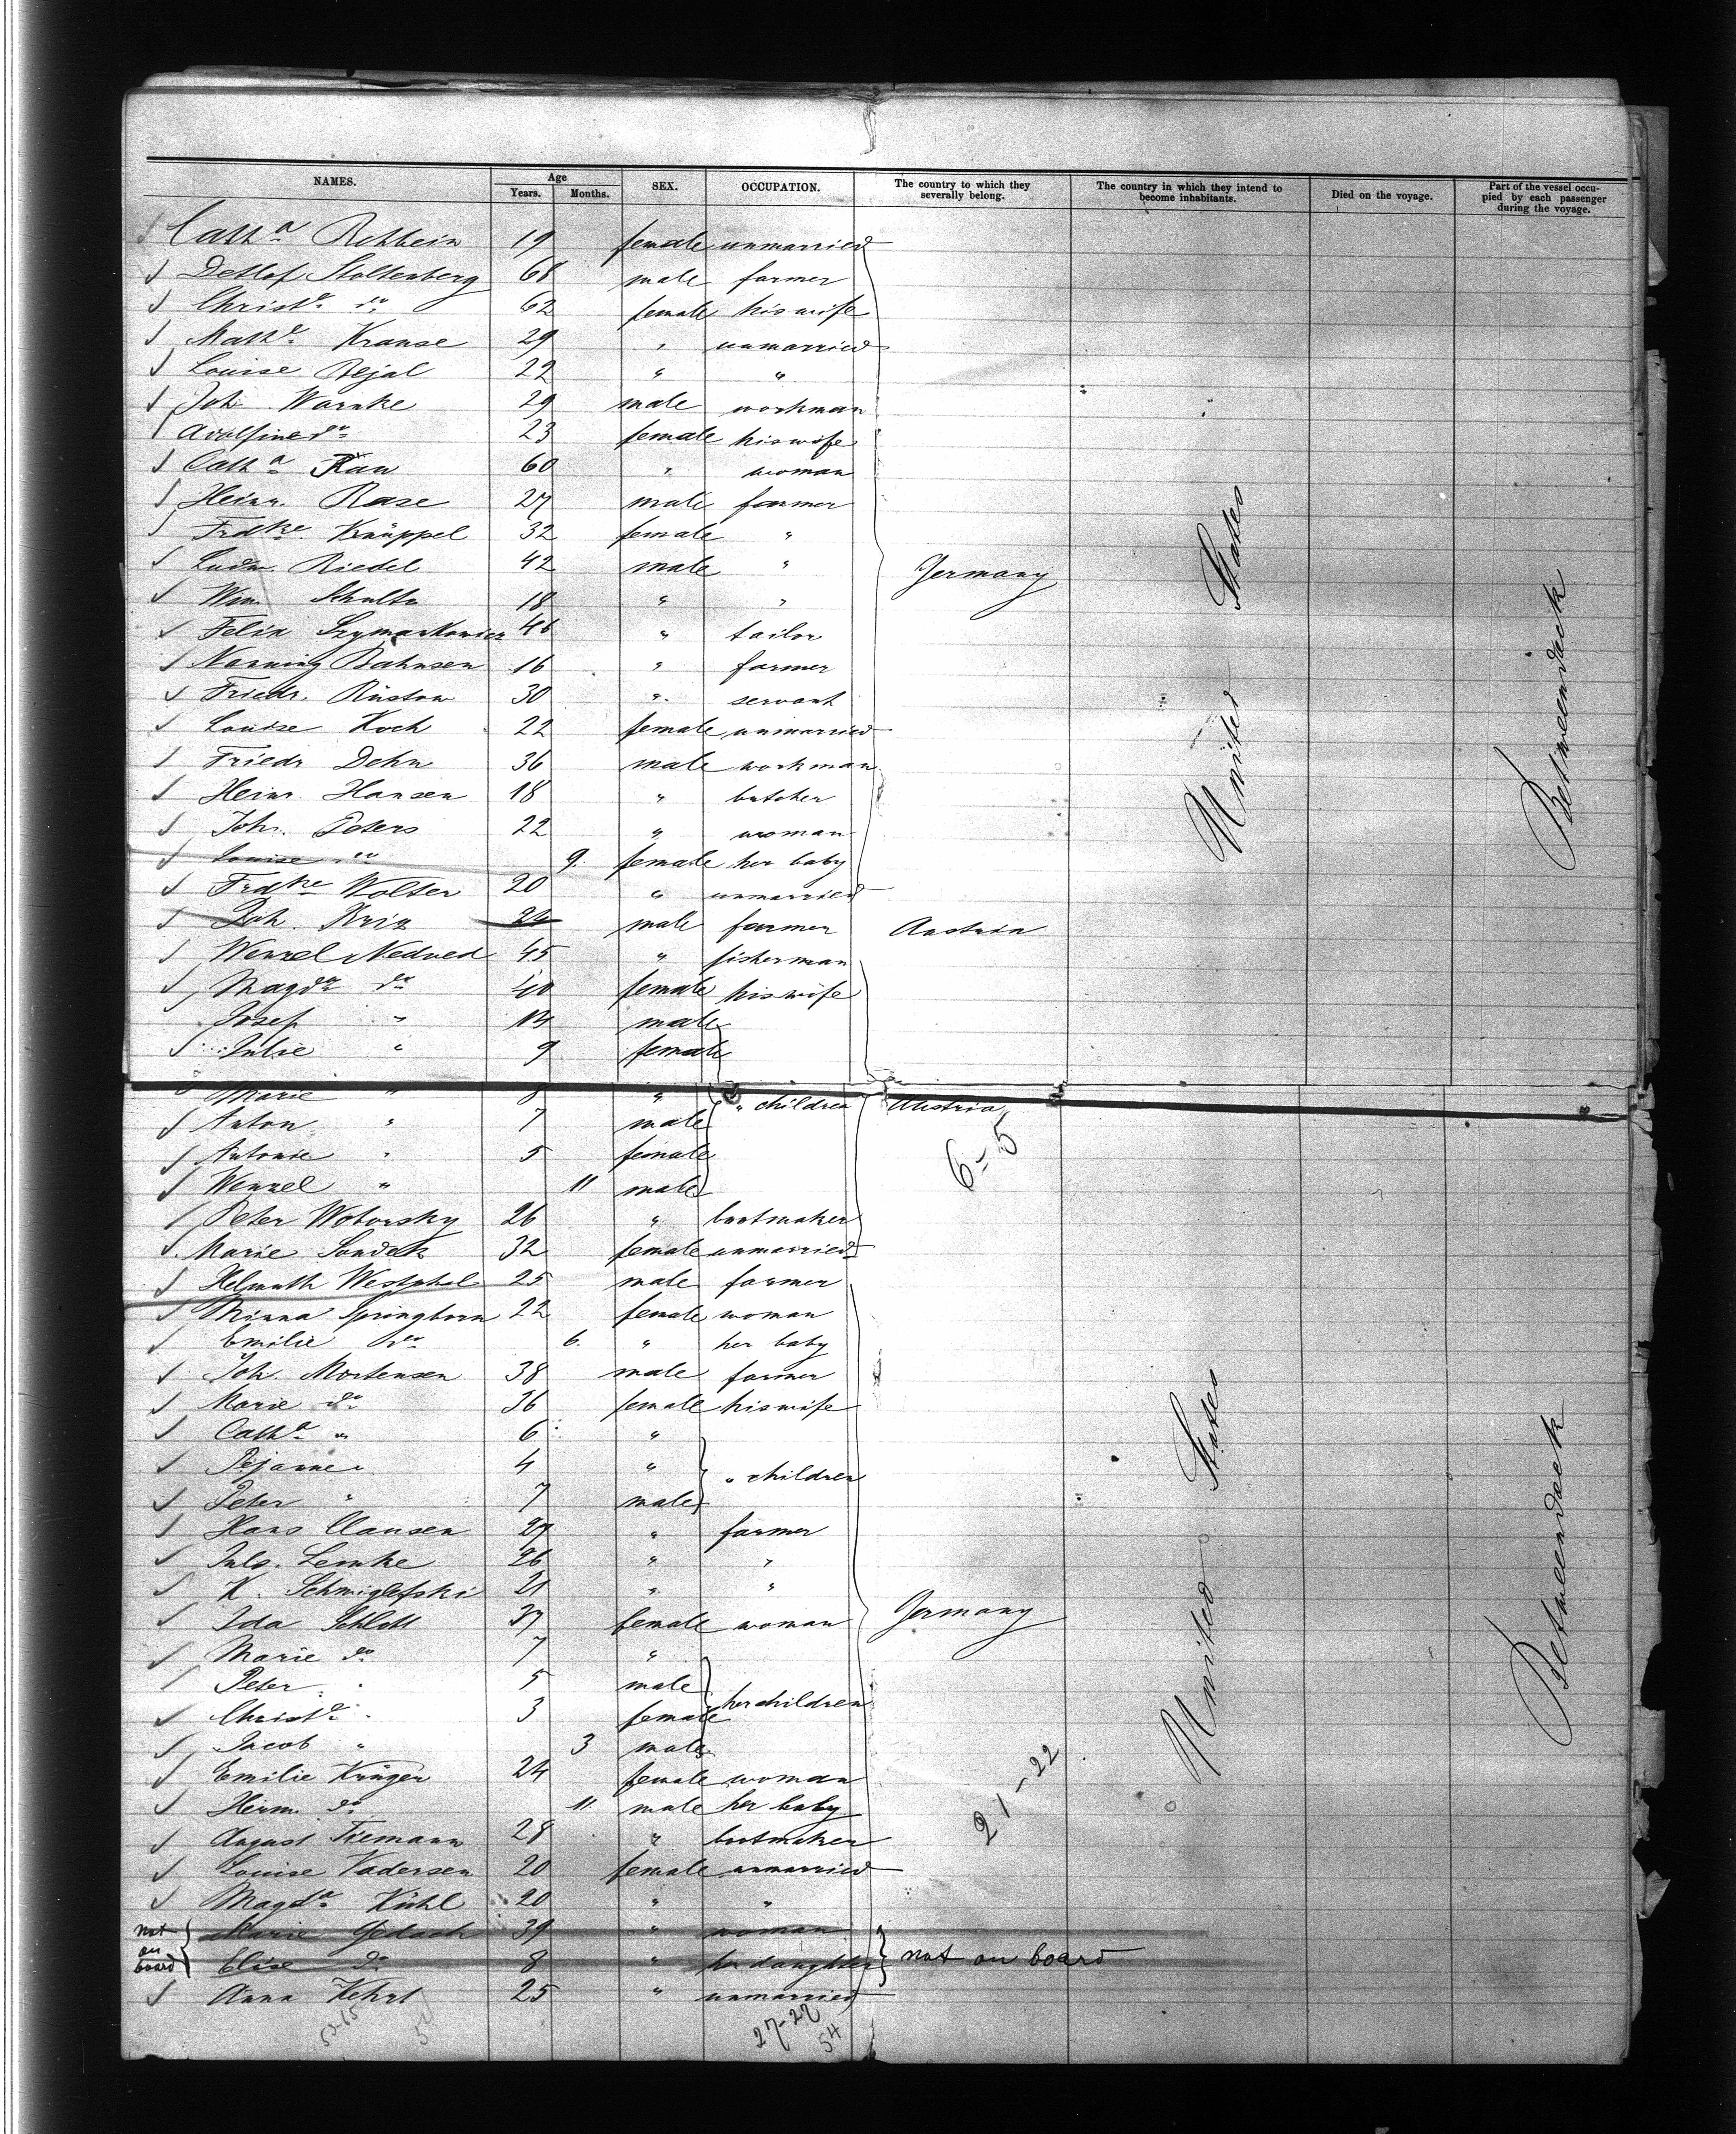 NAMES. Age Years. Months. SEX. OCCUPATION. The country to which they severally belong. The country in which they intend to become inhabitants. Died on the voyage. Part of the vessel occupied by each passenger during the voyage.
Cath a Rohbein 19 female unmarried
Detlef Stoltenberg 68 male farmer
Christe do 62 female his wife
Mathe Krause 29 " unmarried
Louise Rejal 22 " "
Joh Warnke 29 male workman
Adolfine do 23 female his wife
Catha Rau 60 " woman
Heinr. Rase 27 male farmer
Frdke Knüppel 32 female "
Ludw. Riedel 42 male " Germany
Wm. Schultz 18 " "
Felix Szymarkowicz 46 " tailor
Nanning Bahnsen 16 " farmer
Friedr. Rüstow 30 " servant
Louise Koch 22 female unmarried
Friedr Dehn 36 male workman
Heinr. Hansen 18 " butcher
Joh. Peters 22 " woman
Louise do 9 female her baby
Frdke Wolter 20 " unmarried
Joh. Kriz 24 male farmer Austria
Wenzel Nedved 45 " fisherman
Magda do 40 female his wife
Josef " 14 male
Julie " 9 female
Marie " 8 " " children Austria
Anton " 7 male
Antonie " 5 female 6-5
Wenzel " 11 male
Peter Woborsky 26 " bootmaker
Marie Soudek 32 female unmarried
Helmuth Westphal 25 male farmer
Minna Springborn 22 female woman
Emilie do 6 " her baby
Joh. Mortensen 38 male farmer
Marie do 36 female his wife
Catha " 6 "
4 " " children
Peter " 7 male
Hans Clausen 27 " farmer
Juls. Lemke 26 " "
K. Schmiglefski 21 " "
Ida Schlott 37 female woman Germany
Marie do 7 "
Peter " 5 male her children
Christe " 3 female
Jacob " 3 male
Emilie Krüger 24 female woman
Herm. do 11 male her baby 21-22
August Tiemann 28 " bootmaker
Louise Kadersen 20 female unmarried
Magda Kühl 20 " "
not on board Marie Gedach 39 " woman
Elise do 8 " her daughter not on board
Anna Kehrl 25 " unmarried
50-65 54 27-27 54
United States
Betweendeck
United States
Betweendeck